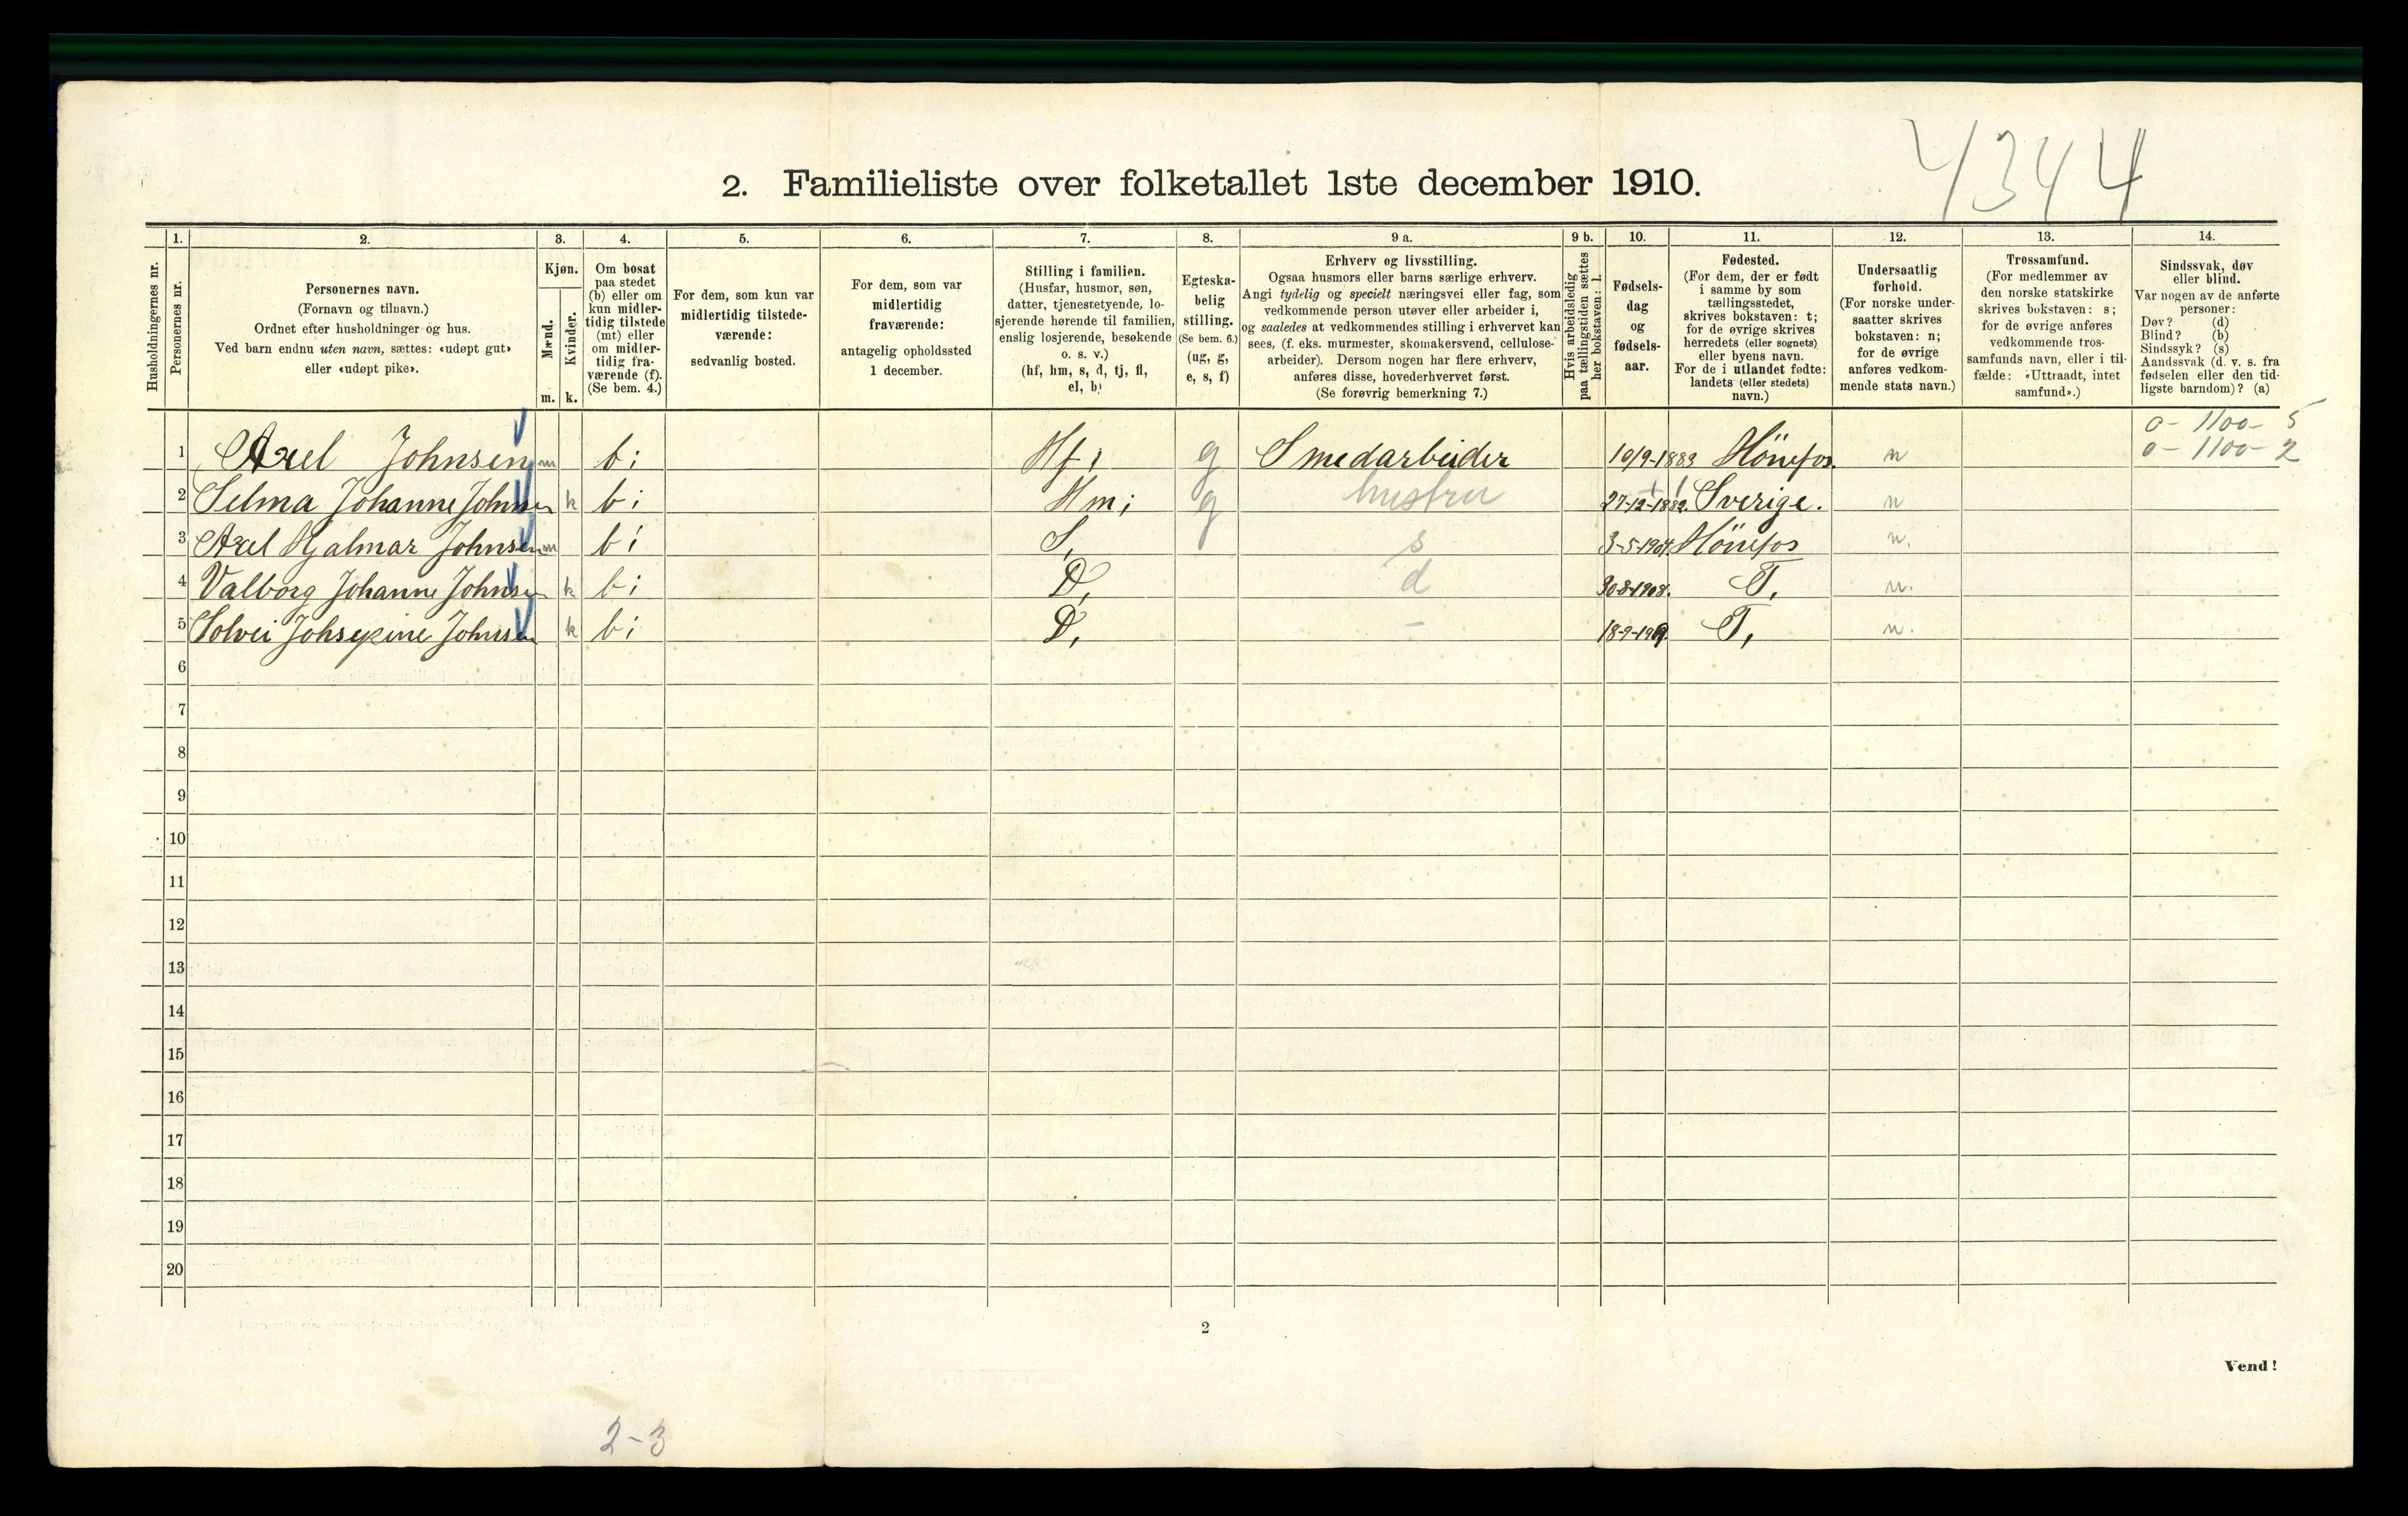 4344
2. Familieliste over folketallet 1ste december 1910.
Husholdningernes nr.
1.
Personernes nr.
2.
Personernes navn.
(Fornavn og tilnavn.)
Ordnet efter husholdninger og hus.
Ved barn endnu uten navn, sættes: «udøpt gut»
eller «udøpt pike».
3.
Kjøn.
Mænd.
Kvinder.
m. k.
4.
Om bosat
paa stedet
(b) eller om
kun midler-
tidig tilstede
(mt) eller
om midler-
tidig fra-
værende (f).
(Se bem. 4.)
5.
For dem, som kun var
midlertidig tilstede-
værende:
sedvanlig bosted.
6.
For dem, som var
midlertidig
fraværende:
antagelig opholdssted
1 december.
7.
Stilling i familien.
(Husfar, husmor, søn,
datter, tjenestetyende, lo-
sjerende hørende til familien,
enslig losjerende, besøkende
o. s. v.)
(hf, hm, s, d, tj, fl,
el, b)
8.
Egteska-
belig
stilling.
(Se bem. 6.)
(ug, g,
e, s, f)
9 a.
Erhverv og livsstilling.
Ogsaa husmors eller barns særlige erhverv.
Angi tydelig og specielt næringsvei eller fag, som
vedkommende person utøver eller arbeider i,
og saaledes at vedkommendes stilling i erhvervet kan
sees, (f. eks. murmester, skomakersvend, cellulose-
arbeider). Dersom nogen har flere erhverv,
anføres disse, hovederhvervet først.
(Se forøvrig bemerkning 7.)
9 b.
Hvis arbeidsledig
paa tællingstiden sættes
her bokstaven: l.
10.
Fødsels-
dag
og
fødsels-
aar.
11.
Fødested.
(For dem, der er født
i samme by som
tællingsstedet,
skrives bokstaven: t;
for de øvrige skrives
herredets (eller sognets)
eller byens navn.
For de i utlandet fødte:
landets (eller stedets)
navn.)
12.
Undersaatlig
forhold.
(For norske under-
saatter skrives
bokstaven: n;
for de øvrige
anføres vedkom-
mende stats navn.)
13.
Trossamfund.
(For medlemmer av
den norske statskirke
skrives bokstaven: s;
for de øvrige anføres
vedkommende tros-
samfunds navn, eller i til-
fælde: «Uttraadt, intet
samfund».)
14.
Sindssvak, døv
eller blind.
Var nogen av de anførte
personer:
Døv? (d)
Blind? (b)
Sindssyk? (s)
Aandssvak (d. v. s. fra
fødselen eller den tid-
ligste barndom)? (a)
0 - 1100 - 5
0 - 1100 - 2
1 Axel Johnsen m b; Hf; g Smedarbeider 10/9-1883 Hönefos. n
2 Selma Johanne Johnsen k b; Hm; g hustru 27-12-1882. Sverige. n
3 Axel Hjalmar Johnsen m b; S, s 3-5-1904. Hönefos n.
4 Valborg Johanne Johnsen k b; D, d 30-8-1908. T, n.
5 Solvei Johsepine Johnsen k b; D, - 18-9-1909. T, n.
6
7
8
9
10
11
12
13
14
15
16
17
18
19
20
2
Vend!
2-3